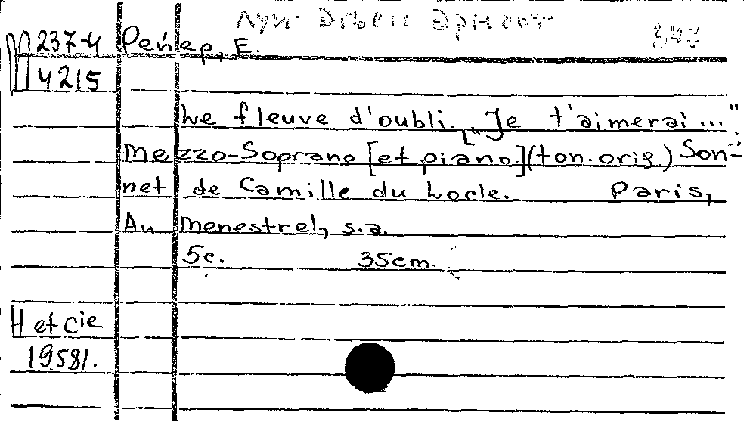 П237-4 Рейер, Е.
П4215
Le fleuve d'oubli. ["Je t'aimerai..."
Mezzo-Soprano [et piano] (ton. orig.) Son-
net de Camille du Locle. Paris,
Au menestrel, s.a.
5c. 35cm.
H et cie
19581.